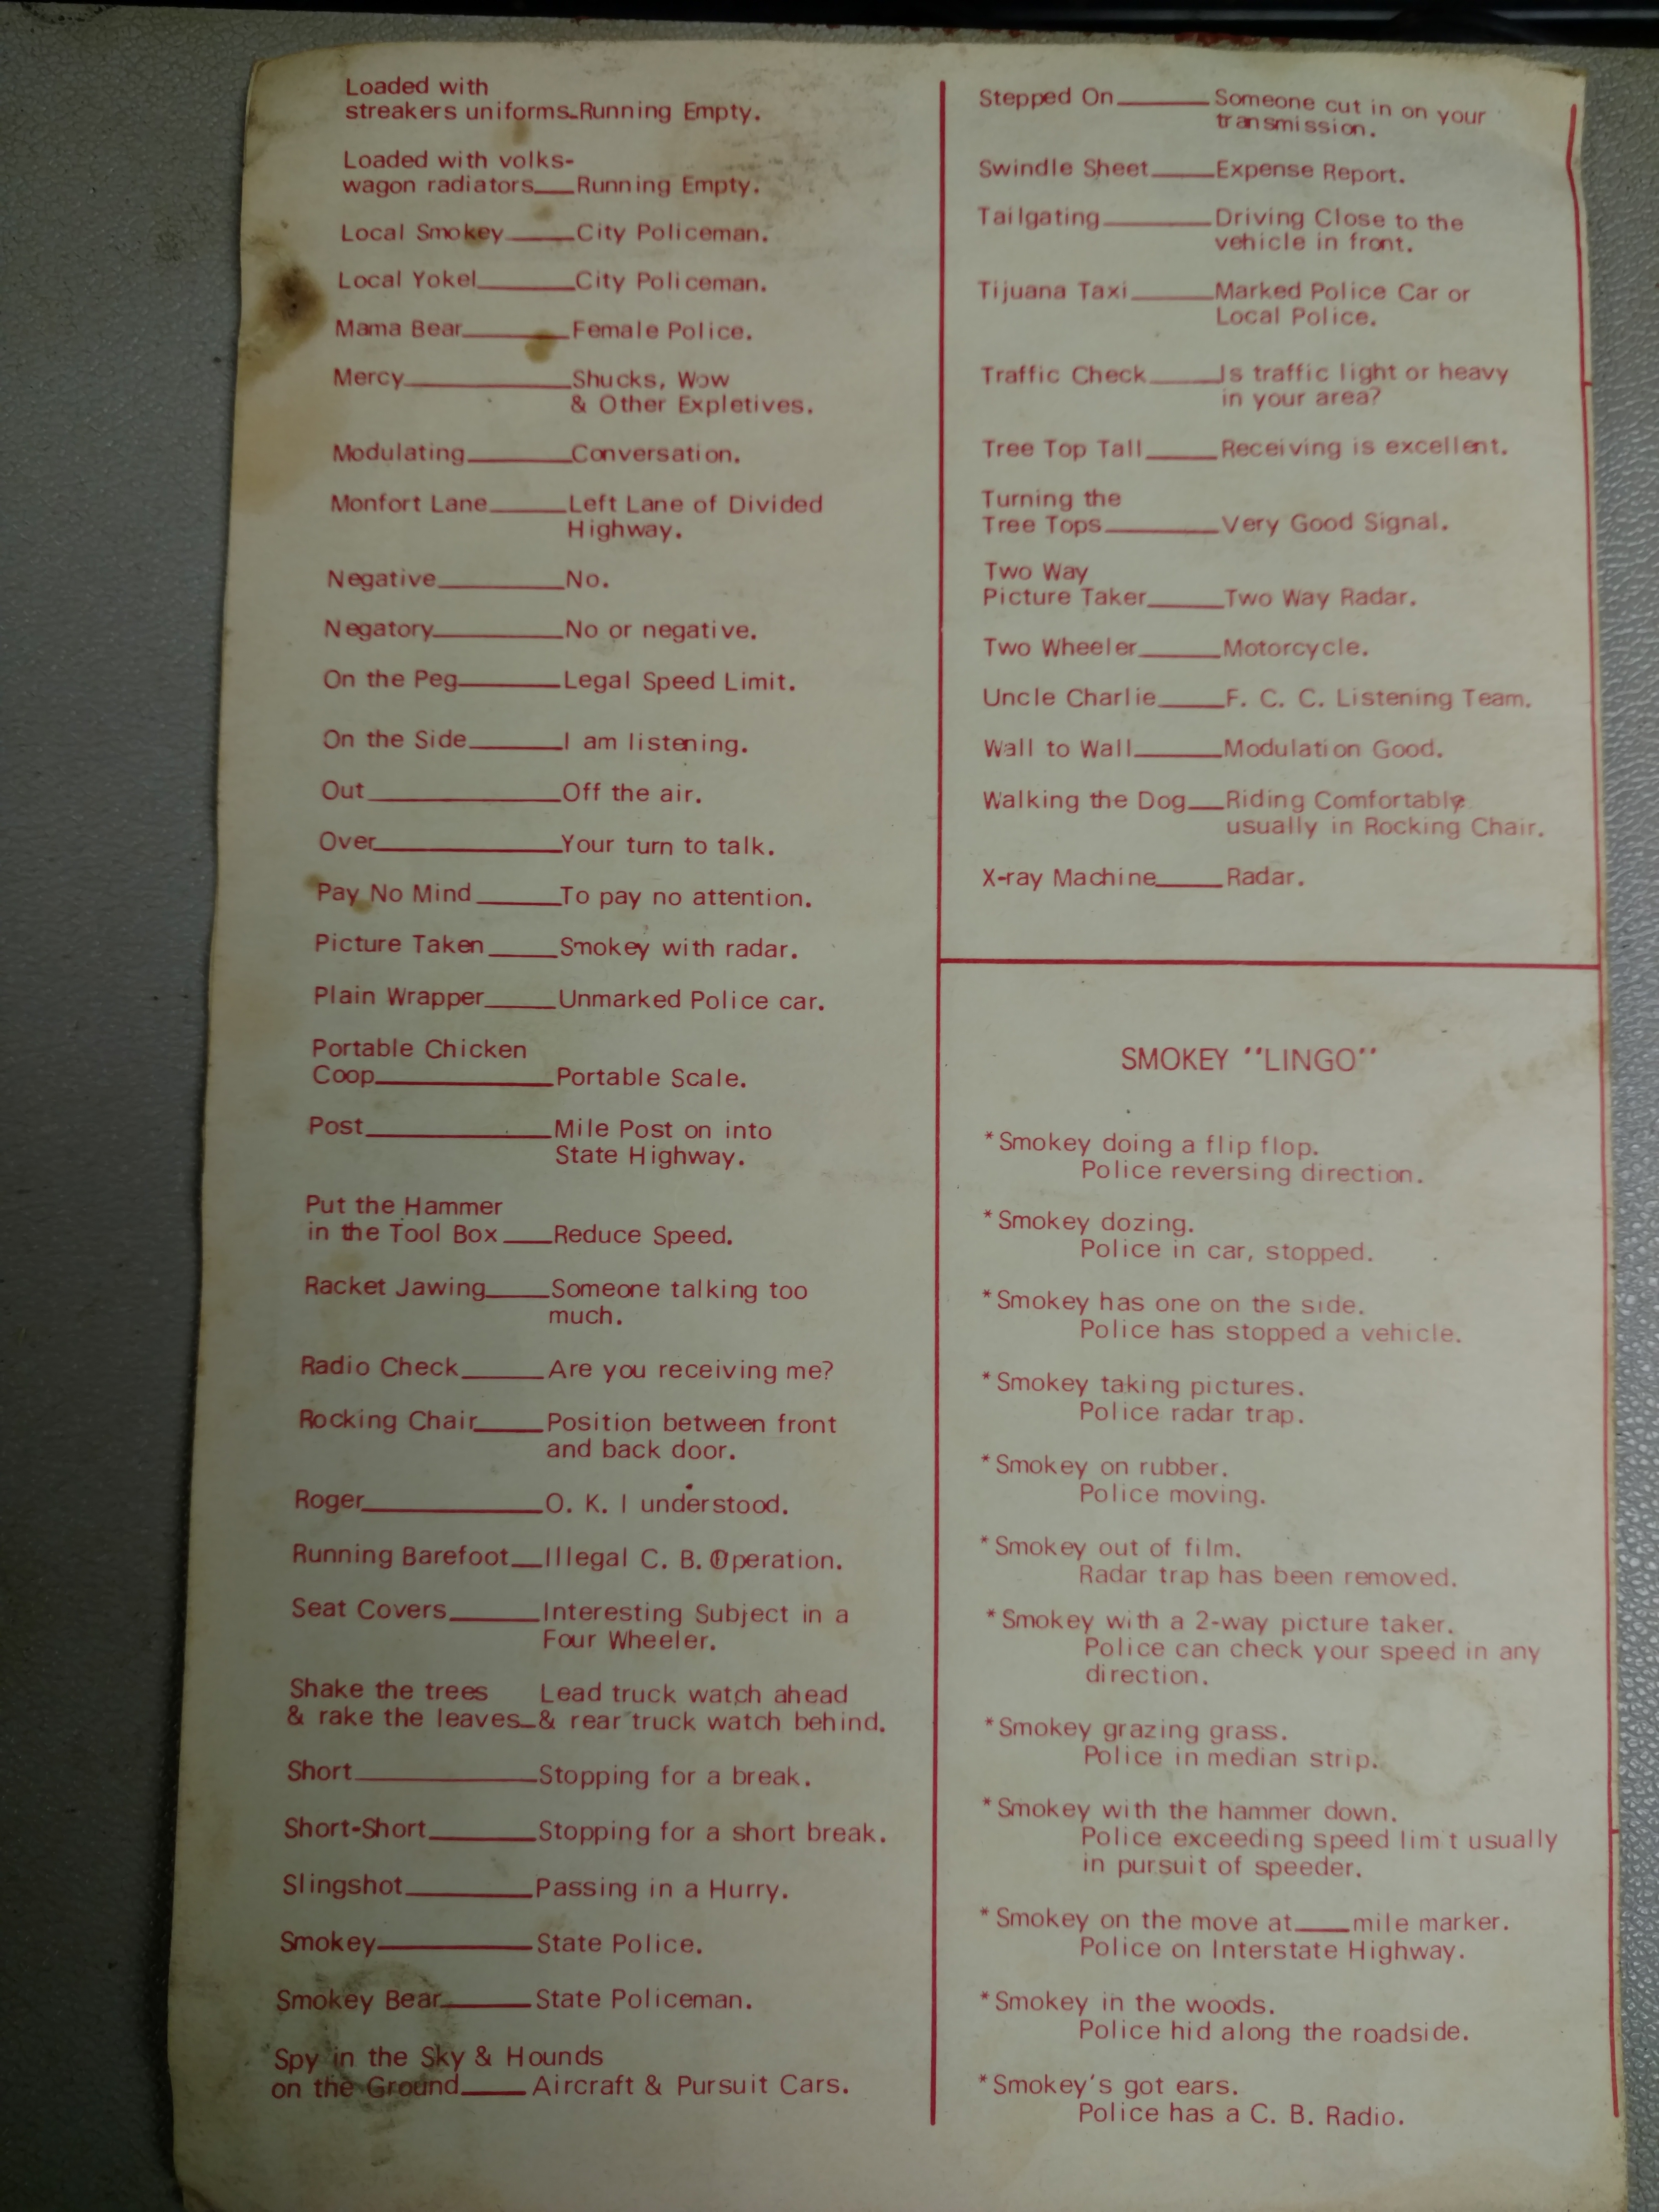 Loaded with
streakers uniforms_Running Empty.
Loaded with volks-
wagon radiators___Running Empty.
Local Smokey_____City Policeman.
Local Yokel_______City Policeman.
Mama Bear________Female Police.
Mercy____________Shucks, Wow
& Other Expletives.
Modulating________Conversation.
Monfort Lane_____Left Lane of Divided
Highway.
Negative__________No.
Negatory__________No or negative.
On the Peg________Legal Speed Limit.
On the Side_______I am listening.
Out______________Off the air.
Over_____________Your turn to talk.
Pay No Mind______To pay no attention.
Picture Taken_____Smokey with radar.
Plain Wrapper_____Unmarked Police car.
Portable Chicken
Coop_____________Portable Scale.
Post_____________Mile Post on into
State Highway.
Put the Hammer
in the Tool Box___Reduce Speed.
Racket Jawing____Someone talking too
much.
Radio Check______Are you receiving me?
Rocking Chair_____Position between front
and back door.
Roger____________O. K. I understood.
Running Barefoot__Illegal C. B. Operation.
Seat Covers_______Interesting Subject in a
Four Wheeler.
Shake the trees Lead truck watch ahead
& rake the leaves_& rear truck watch behind.
Short_____________Stopping for a break.
Short-Short_______Stopping for a short break.
Slingshot_________Passing in a Hurry.
Smokey___________State Police.
Smokey Bear______State Policeman.
Spy in the Sky & Hounds
on the Ground____Aircraft & Pursuit Cars.
Stepped On_______Someone cut in on your
transmission.
Swindle Sheet_____Expense Report.
Tailgating________Driving Close to the
vehicle in front.
Tijuana Taxi______Marked Police Car or
Local Police.
Traffic Check_____Is traffic light or heavy
in your area?
Tree Top Tall_____Receiving is excellent.
Turning the
Tree Tops________Very Good Signal.
Two Way
Picture Taker_____Two Way Radar.
Two Wheeler______Motorcycle.
Uncle Charlie_____F. C. C. Listening Team.
Wall to Wall______Modulation Good.
Walking the Dog__Riding Comfortably
usually in Rocking Chair.
X-ray Machine____Radar.
SMOKEY "LINGO"
*Smokey doing a flip flop.
Police reversing direction.
*Smokey dozing.
Police in car, stopped.
*Smokey has one on the side.
Police has stopped a vehicle.
*Smokey taking pictures.
Police radar trap.
*Smokey on rubber.
Police moving.
*Smokey out of film.
Radar trap has been removed.
*Smokey with a 2-way picture taker.
Police can check your speed in any
direction.
*Smokey grazing grass.
Police in median strip.
*Smokey with the hammer down.
Police exceeding speed lim t usually
in pursuit of speeder.
*Smokey on the move at____mile marker.
Police on Interstate Highway.
*Smokey in the woods.
Police hid along the roadside.
*Smokey's got ears.
Police has a C. B. Radio.